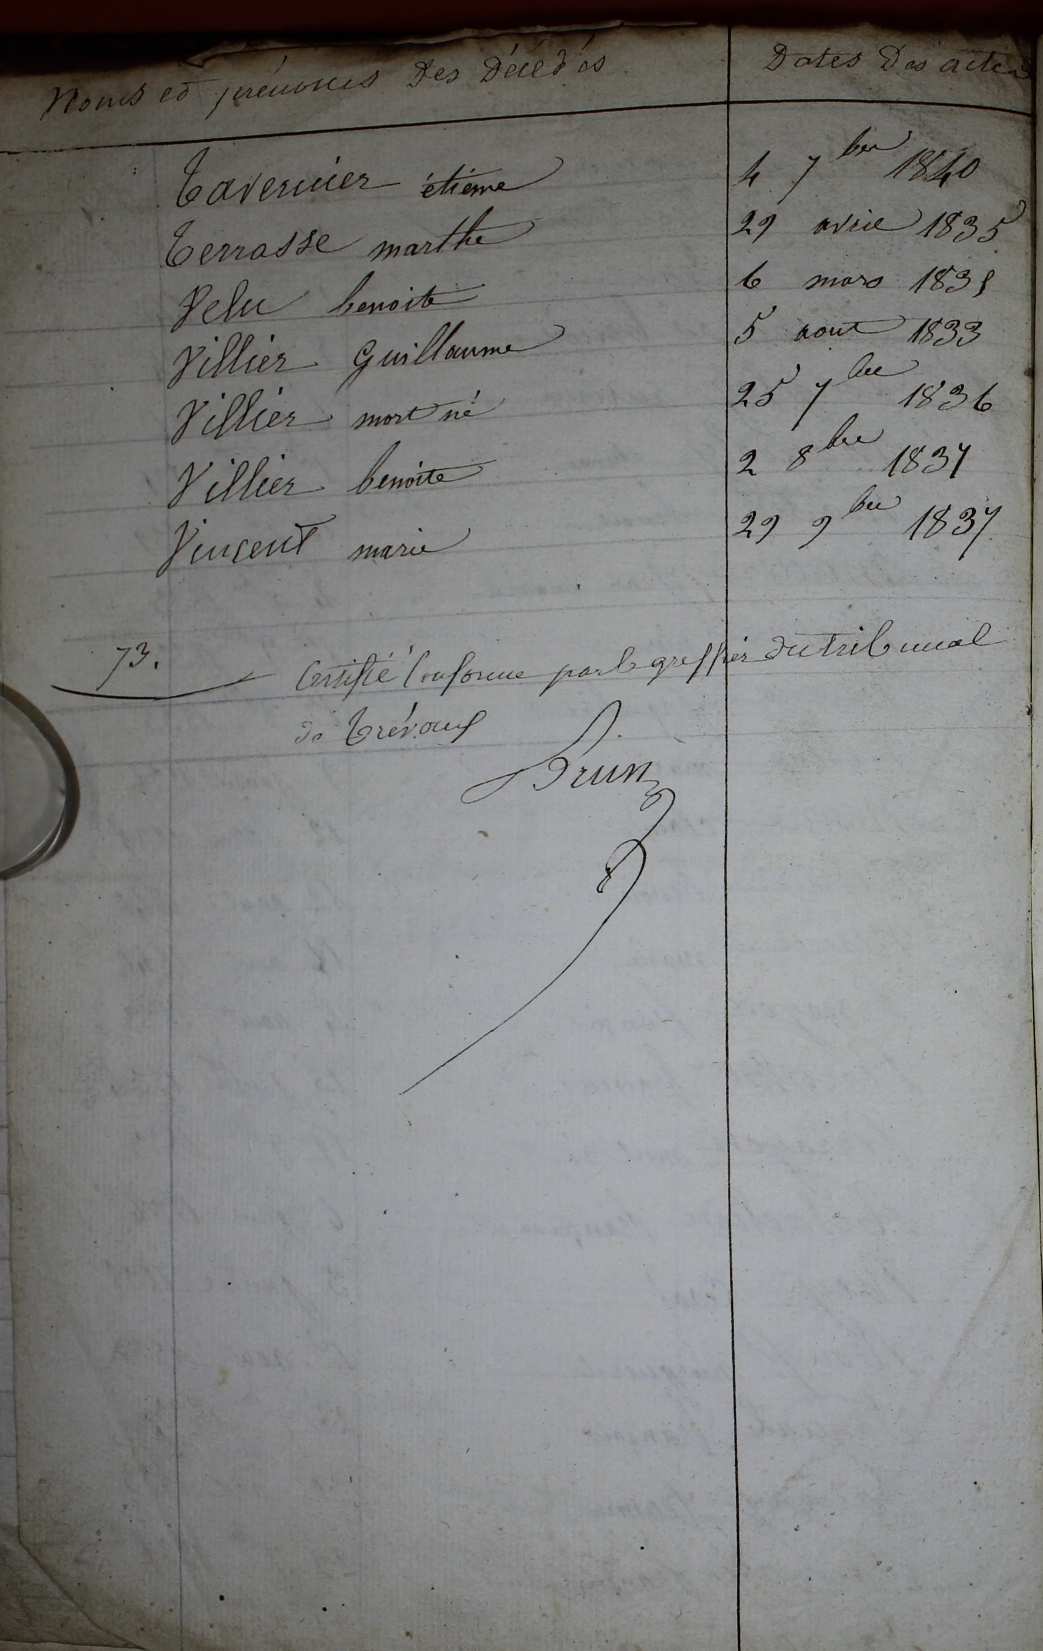 Noms et prénoms Des Décédés Dates Des actes
Tavernier étienne 4 7bre 1840
Terrasse marthe 29 avril 1835
Velu benoite 6 mars 1835
Villier Guillaume 5 aout 1833
Villier mort né 25 7bre 1836
Villier benoite 2 8bre 1837
Vincent marie 29 9bre 1837
73. Certifié Conforme par le greffier du tribunal
de Trévoux
Brun